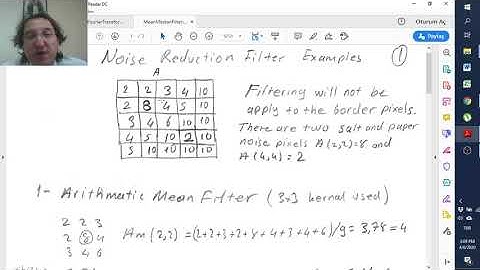 Reader DC
FourierTransfor...
MeanMaxFilterin...
Oturum Aç
Noise Reduction Filter Examples
1
A
2 2 3 4 10
2 8 4 5 10
3 4 6 10 10
4 5 10 2 10
5 10 10 10 10
Filtering will not be
apply to the border pixels.
There are two salt and paper
noise pixels A(2,2)=8 and
A(4,4)=2
1- Arithmatic Mean Filter (3x3 kernal used)
2 2 3
2 8 4
3 4 6
Am (2,2) =(2+2+3+2+8+4+3+4+6)/9 = 3,78 = 4